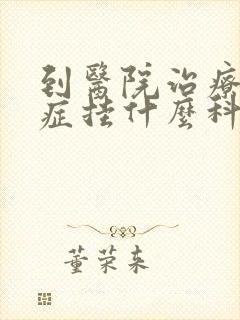 到醫院治療
症挂什麼科
董荣来